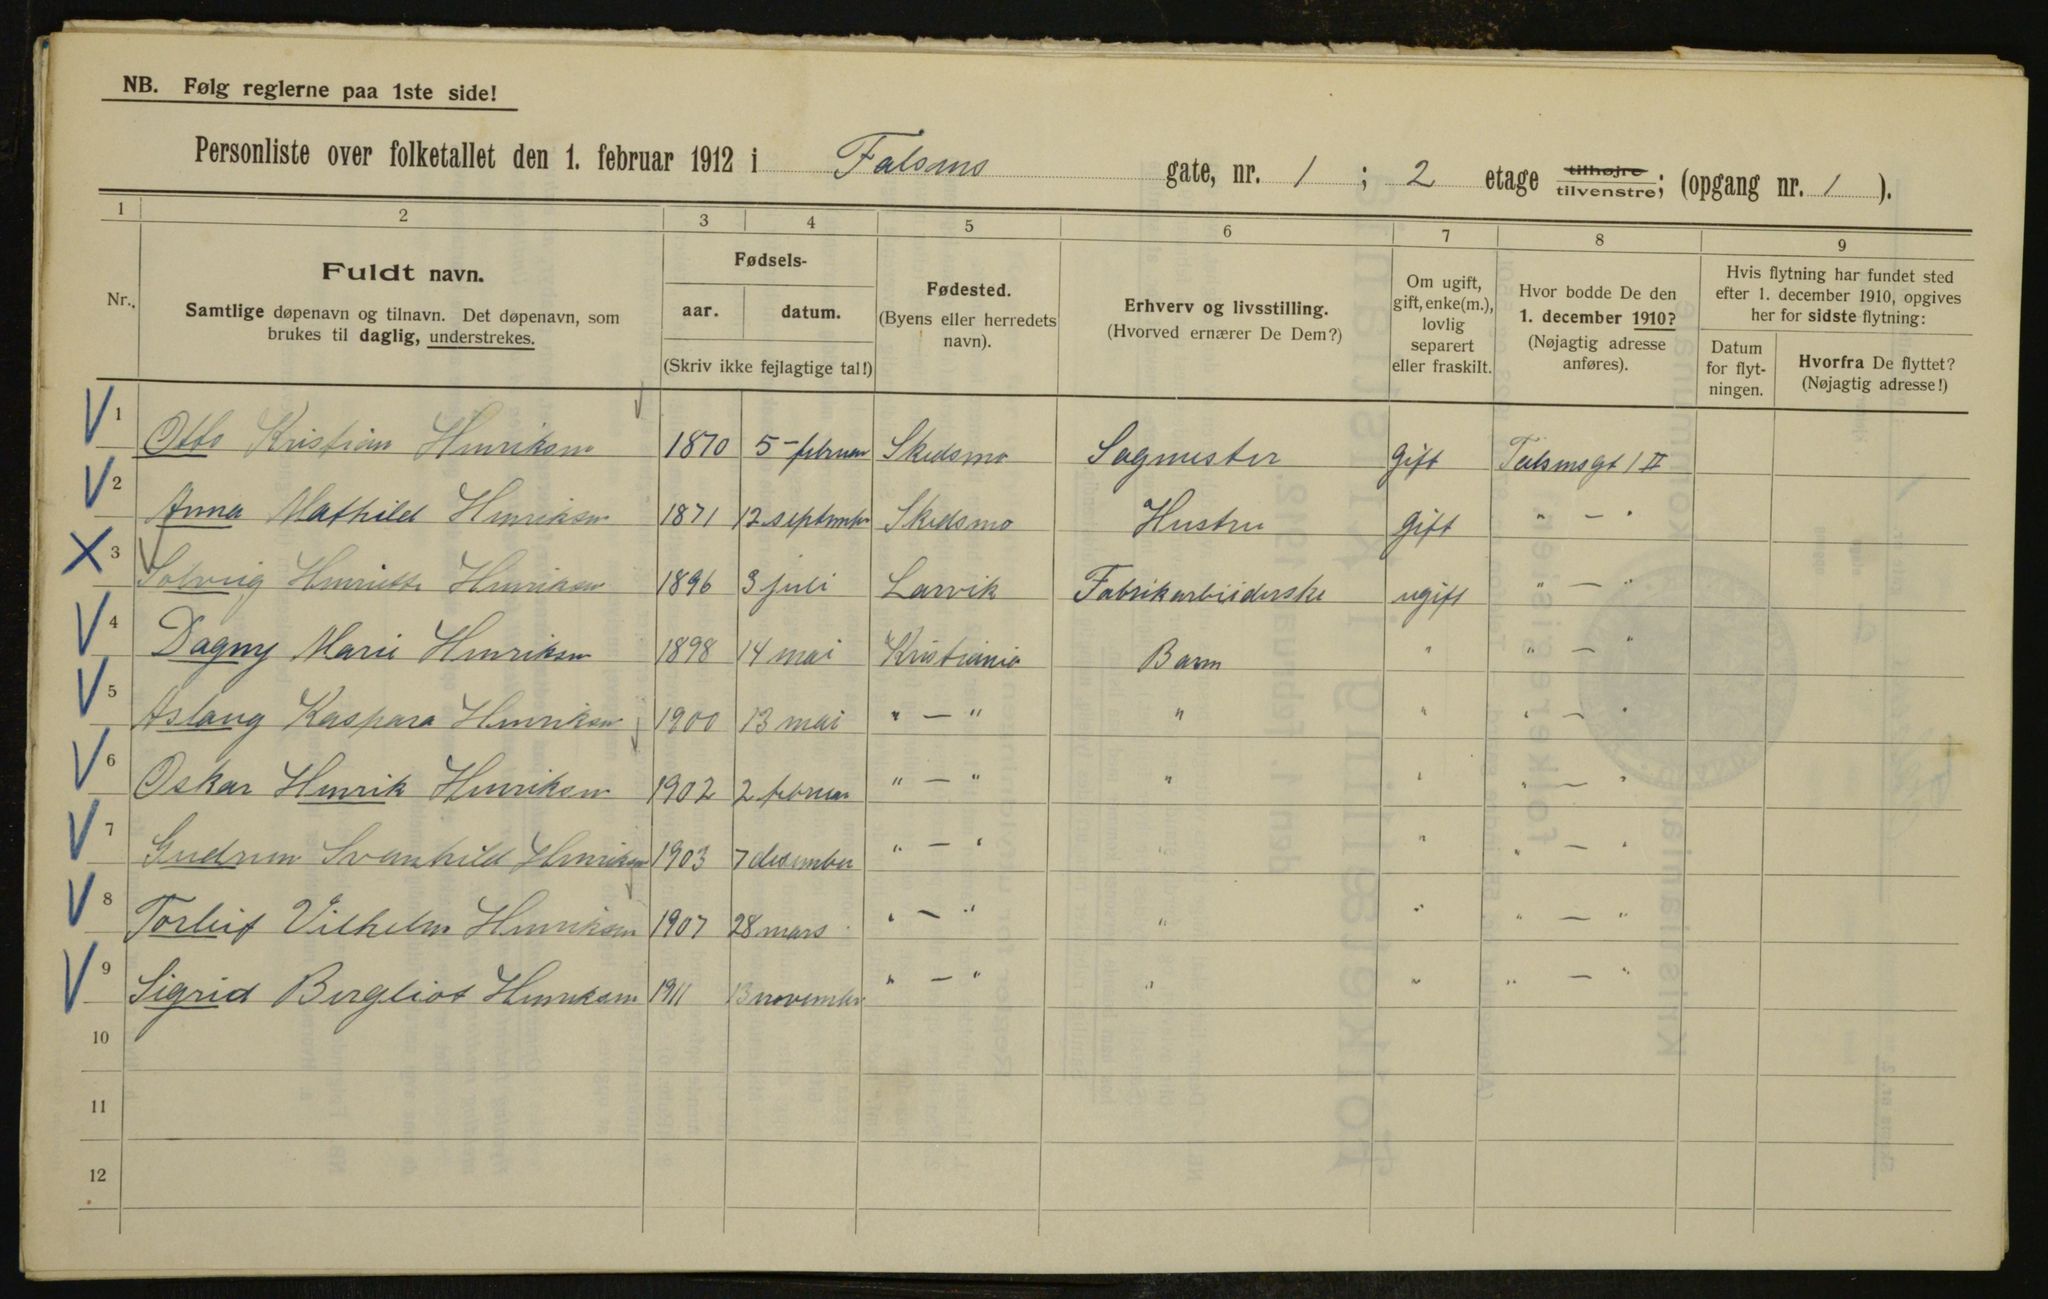 NB. Følg reglerne paa 1ste side!
Personliste over folketallet den 1. februar 1912 i Falsens gate, nr. 1 ; 2 etage tilhøjre tilvenstre; (opgang nr. 1 ).
1 2 3 4 5 6 7 8 9
Nr.
Fuldt navn.
Samtlige døpenavn og tilnavn. Det døpenavn, som
brukes til daglig, understrekes.
Fødsels-
aar. datum.
(Skriv ikke fejlagtige tal!)
Fødested.
(Byens eller herredets
navn).
Erhverv og livsstilling.
(Hvorved ernærer De Dem?)
Om ugift,
gift, enke(m.),
lovlig
separert
eller fraskilt.
Hvor bodde De den
1. december 1910?
(Nøjagtig adresse
anføres).
Hvis flytning har fundet sted
efter 1. december 1910, opgives
her for sidste flytning:
Datum
for flyt-
ningen.
Hvorfra De flyttet?
(Nøjagtig adresse!)
1 Otto Kristian Henriksen 1870 5 februar Skedsmo Sagmester gift Falsensgt 1 II
2 Anna Mathild Henriksen 1871 12 september Skedsmo Hustru gift " — "
3 Solveig Henriette Henriksen 1896 3 juli Larvik Fabrikarbeiderske ugift " — "
4 Dagny Marie Henriksen 1898 14 mai Kristiania Barn " " — "
5 Aslaug Kaspara Henriksen 1900 13 mai " — " " " " — "
6 Oskar Henrik Henriksen 1902 2 februar " — " " " " — "
7 Gudrun Svanhild Henriksen 1903 7 desember " — " " " " — "
8 Torleif Vilhelm Henriksen 1907 28 mars " — " " " " — "
9 Sigrid Bergliot Henriksen 1911 13 november " — " " " " — "
10
11
12